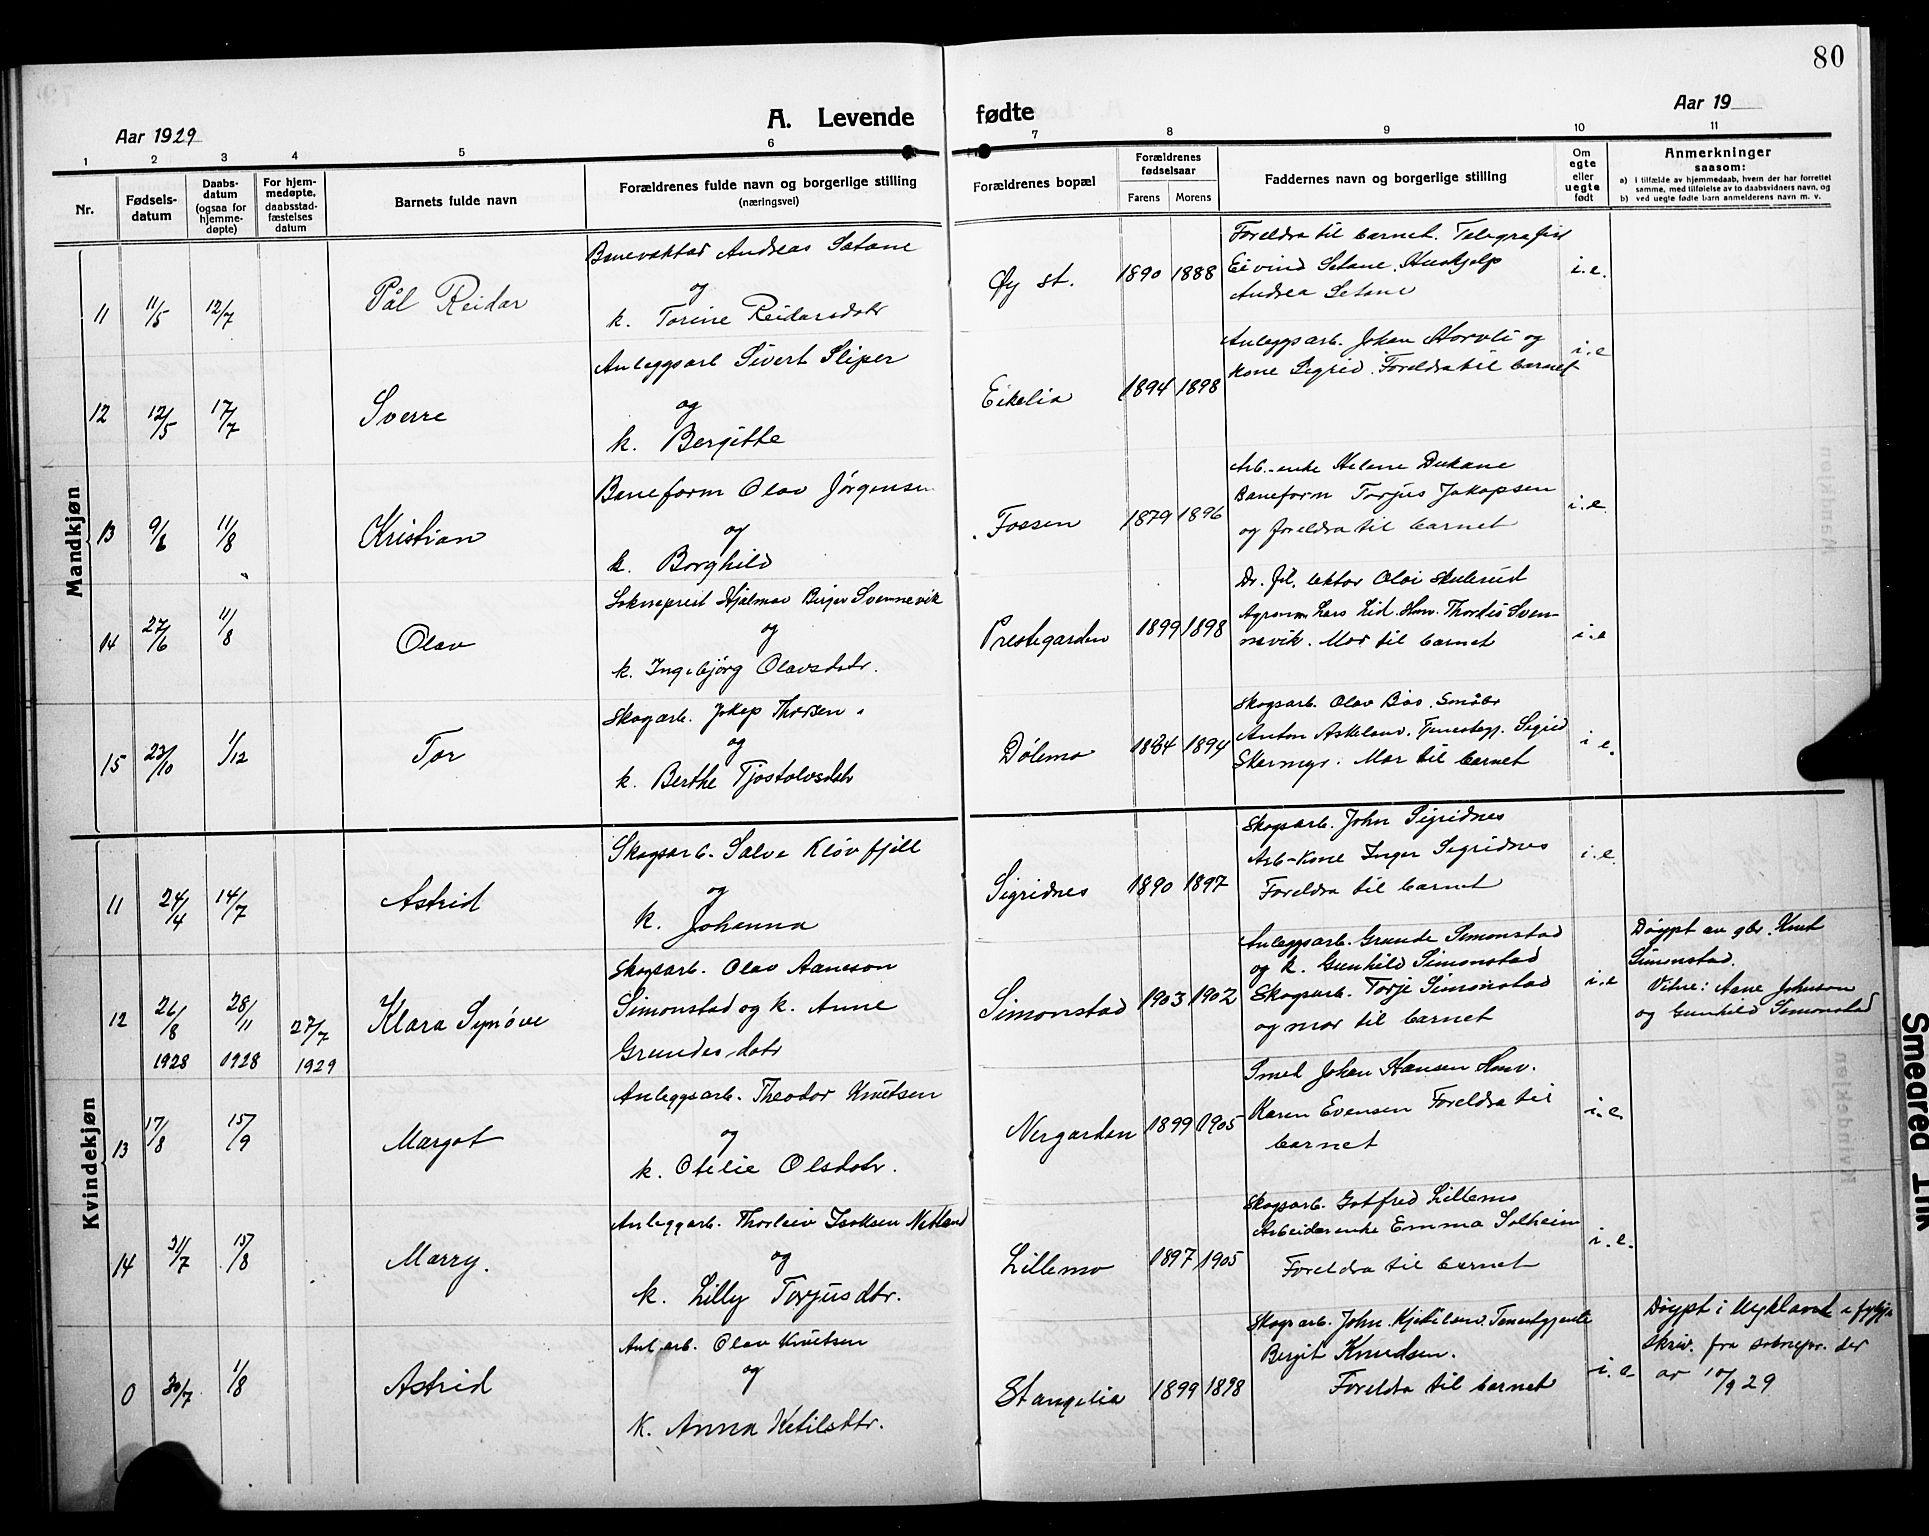 80
A. Levende fødte
Aar 1929
Aar 19
1 2 3 4 5 6 7 8 9 10 11
Nr.
Fødselsdatum
Daabsdatum (ogsaa for hjemmedøpte)
For hjemmedøpte, daabsstadfæstelses datum
Barnets fulde navn
Forældrenes fulde navn og borgerlige stilling
(næringsvei)
Forældrenes bopæl
Forældrenes fødselsaar
Farens Morens
Faddernes navn og borgerlige stilling
Om egte eller uegte født
Anmerkninger
saasom:
a) I tilfælde av hjemmedaab, hvem der har forrettet
samme, med tilføielse av to daabsvidners navn, og
b) ved uegte fødte barn anmelderens navn m. v.
Mandkjøn
11 11/5 12/7 Pål Reidar
Banevaktar Andreas Setane
og
k. Torine Reidarsdotr
Øy st. 1890 1888
Foreldra til barnet. Telegrafist
Eivind Setane. Huskjelp
Andrea Setane
i.e.
12 12/5 17/7 Sverre
Anleggsarb Sivert Sliper
og
k. Bergitte
Eikelia 1894 1898
Anleggsarb. Johan Horvli og
kone Sigrid. Foreldra til barnet
i.e
13 9/6 11/8 Kristian
Baneform Olav Jørgensen
og
k. Borghild
Fossen 1879 1896
Arb.-enke Helene Dukane
Baneform Torjus Jakopsen
og foreldra til barnet
i.e.
14 27/6 11/8 Olav
Sokneprest Hjalmar Birger Svennevik
og
k. Ingebjörg Olavsdotr.
Prestegarden 1899 1898
Dr. fil. lektor Olai Skulerud
Agronom Lars Lid. Husv. Thordis Sven-
nevik. Mor til barnet
i.e
15 23/10 1/12 Tor
Skogarb. Jakop Thorsen
og
k. Berthe Tjostolvsdotr
Dölemo 1884 1894
Skogsarb. Olav Bås. Småbr
Anton Askeland. Tenestegj. Sigrid
Skarmyr. Mor til barnet
i e.
Kvindekjøn
11 24/4 14/7 Astrid
Skogsarb. Salve Kløvfjell
og
k. Johanna
Sigridnes 1890 1897
Skogsarb. John Sigridnes
Arb-kone Inger Sigridnes
Foreldra til barnet
i.e.
12 26/8 1928 28/11 1928 27/7 1929 Klara Synöve
Skogsarb. Olav Aaneson
Simonstad og k. Anne
Grundesdotr
Simonstad 1903 1902
Anleggsarb. Grunde Simonstad
og k. Gunhild Simonstad
Skogsarb. Torje Simonstad
og mor til barnet
i.e
Döypt av gbr. Knut
Simonstad.
Vitne: Aane Johnson
og Gunhild Simonstad
13 17/8 15/9 Margot
Anleggsarb. Theodor Knutsen
og
k. Otelie Olsdotr.
Nergarden 1899 1905
Smed Johan Hansen Husv.
Karen Evensen Foreldra til
barnet
i.e.
14 31/7 15/8 Marry.
Anleggarb. Thorleiv Isaksen Netland
og
k. Lilly Torjusdtr.
Lillemo 1897 1905
Skogsarb. Gotfred Lillemo
Arbeidarenke Emma Solheim
Foreldra til barnet
i.e.
0 30/7 1/8 Astrid
Anl.arb. Olav Knutsen
og
k. Anna Ketilsdtr.
Stangelia 1899 1898
Skogsarb. John Kjetilson. Tenestgjente
Bergit Knudsen.
Foreldra til barnet
i.e.
Döypt i Mykland e fylgje
skriv. fra soknepr. der
av 10/9 29
Smeared Ink